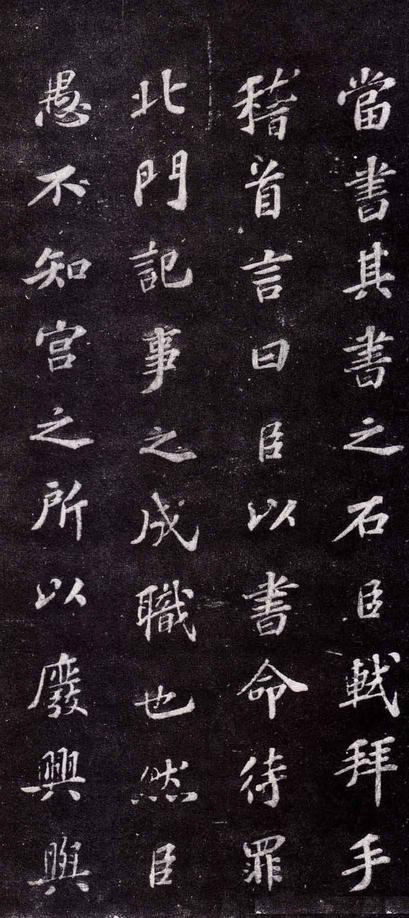 當書其書之石臣軾拜手
稽首言曰臣以書命待罪
北門記事之成職也然臣
愚不知宮之所以廢興與